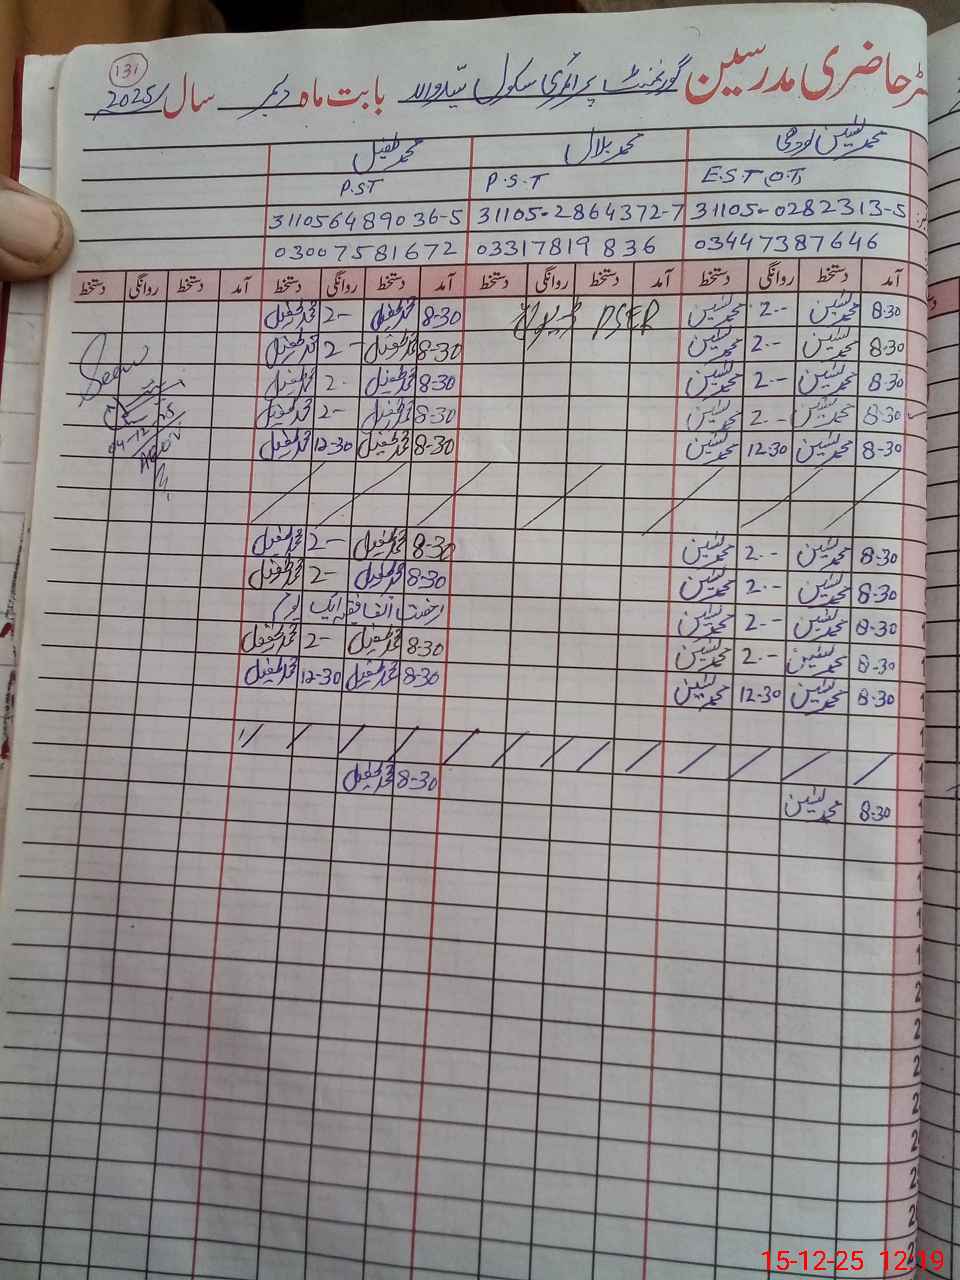 131
رجسٹر حاضری مدرسین گورنمنٹ پرائمری سکول بابت ماہ دسمبر سال 2025
محمد یٰسین لودھی محمد بلال محمد طفیل
E.S.T P.S.T P.S.T
31105-0282313-5 31105-2864372-7 311056489036-5
03447387646 03317819836 03007581672
آمد دستخط روانگی دستخط آمد دستخط روانگی دستخط آمد دستخط روانگی دستخط آمد دستخط روانگی دستخط
8-30 محمد یٰسین 2-- محمد یٰسین PSER 8-30 محمد طفیل 2- محمد طفیل
8-30 محمد یٰسین 2-- محمد یٰسین 8-30 محمد طفیل 2- محمد طفیل
Seen
8-30 محمد یٰسین 2-- محمد یٰسین 8-30 محمد طفیل 2- محمد طفیل
8-30 محمد یٰسین 2-- محمد یٰسین 8-30 محمد طفیل 2- محمد طفیل
04-12-25
8-30 محمد یٰسین 12-30 محمد یٰسین 8-30 محمد طفیل 12-30 محمد طفیل
8-30 محمد یٰسین 2-- محمد یٰسین 8-30 محمد طفیل 2- محمد طفیل
8-30 محمد یٰسین 2-- محمد یٰسین 8-30 محمد طفیل 2- محمد طفیل
8-30 محمد یٰسین 2-- محمد یٰسین رخصت اتفاقیہ ایک یوم
8-30 محمد یٰسین 2-- محمد یٰسین 8-30 محمد طفیل 2- محمد طفیل
8-30 محمد یٰسین 12-30 محمد یٰسین 8-30 محمد طفیل 12-30 محمد طفیل
8-30 محمد طفیل
8-30 محمد یٰسین
15-12-25 12:19